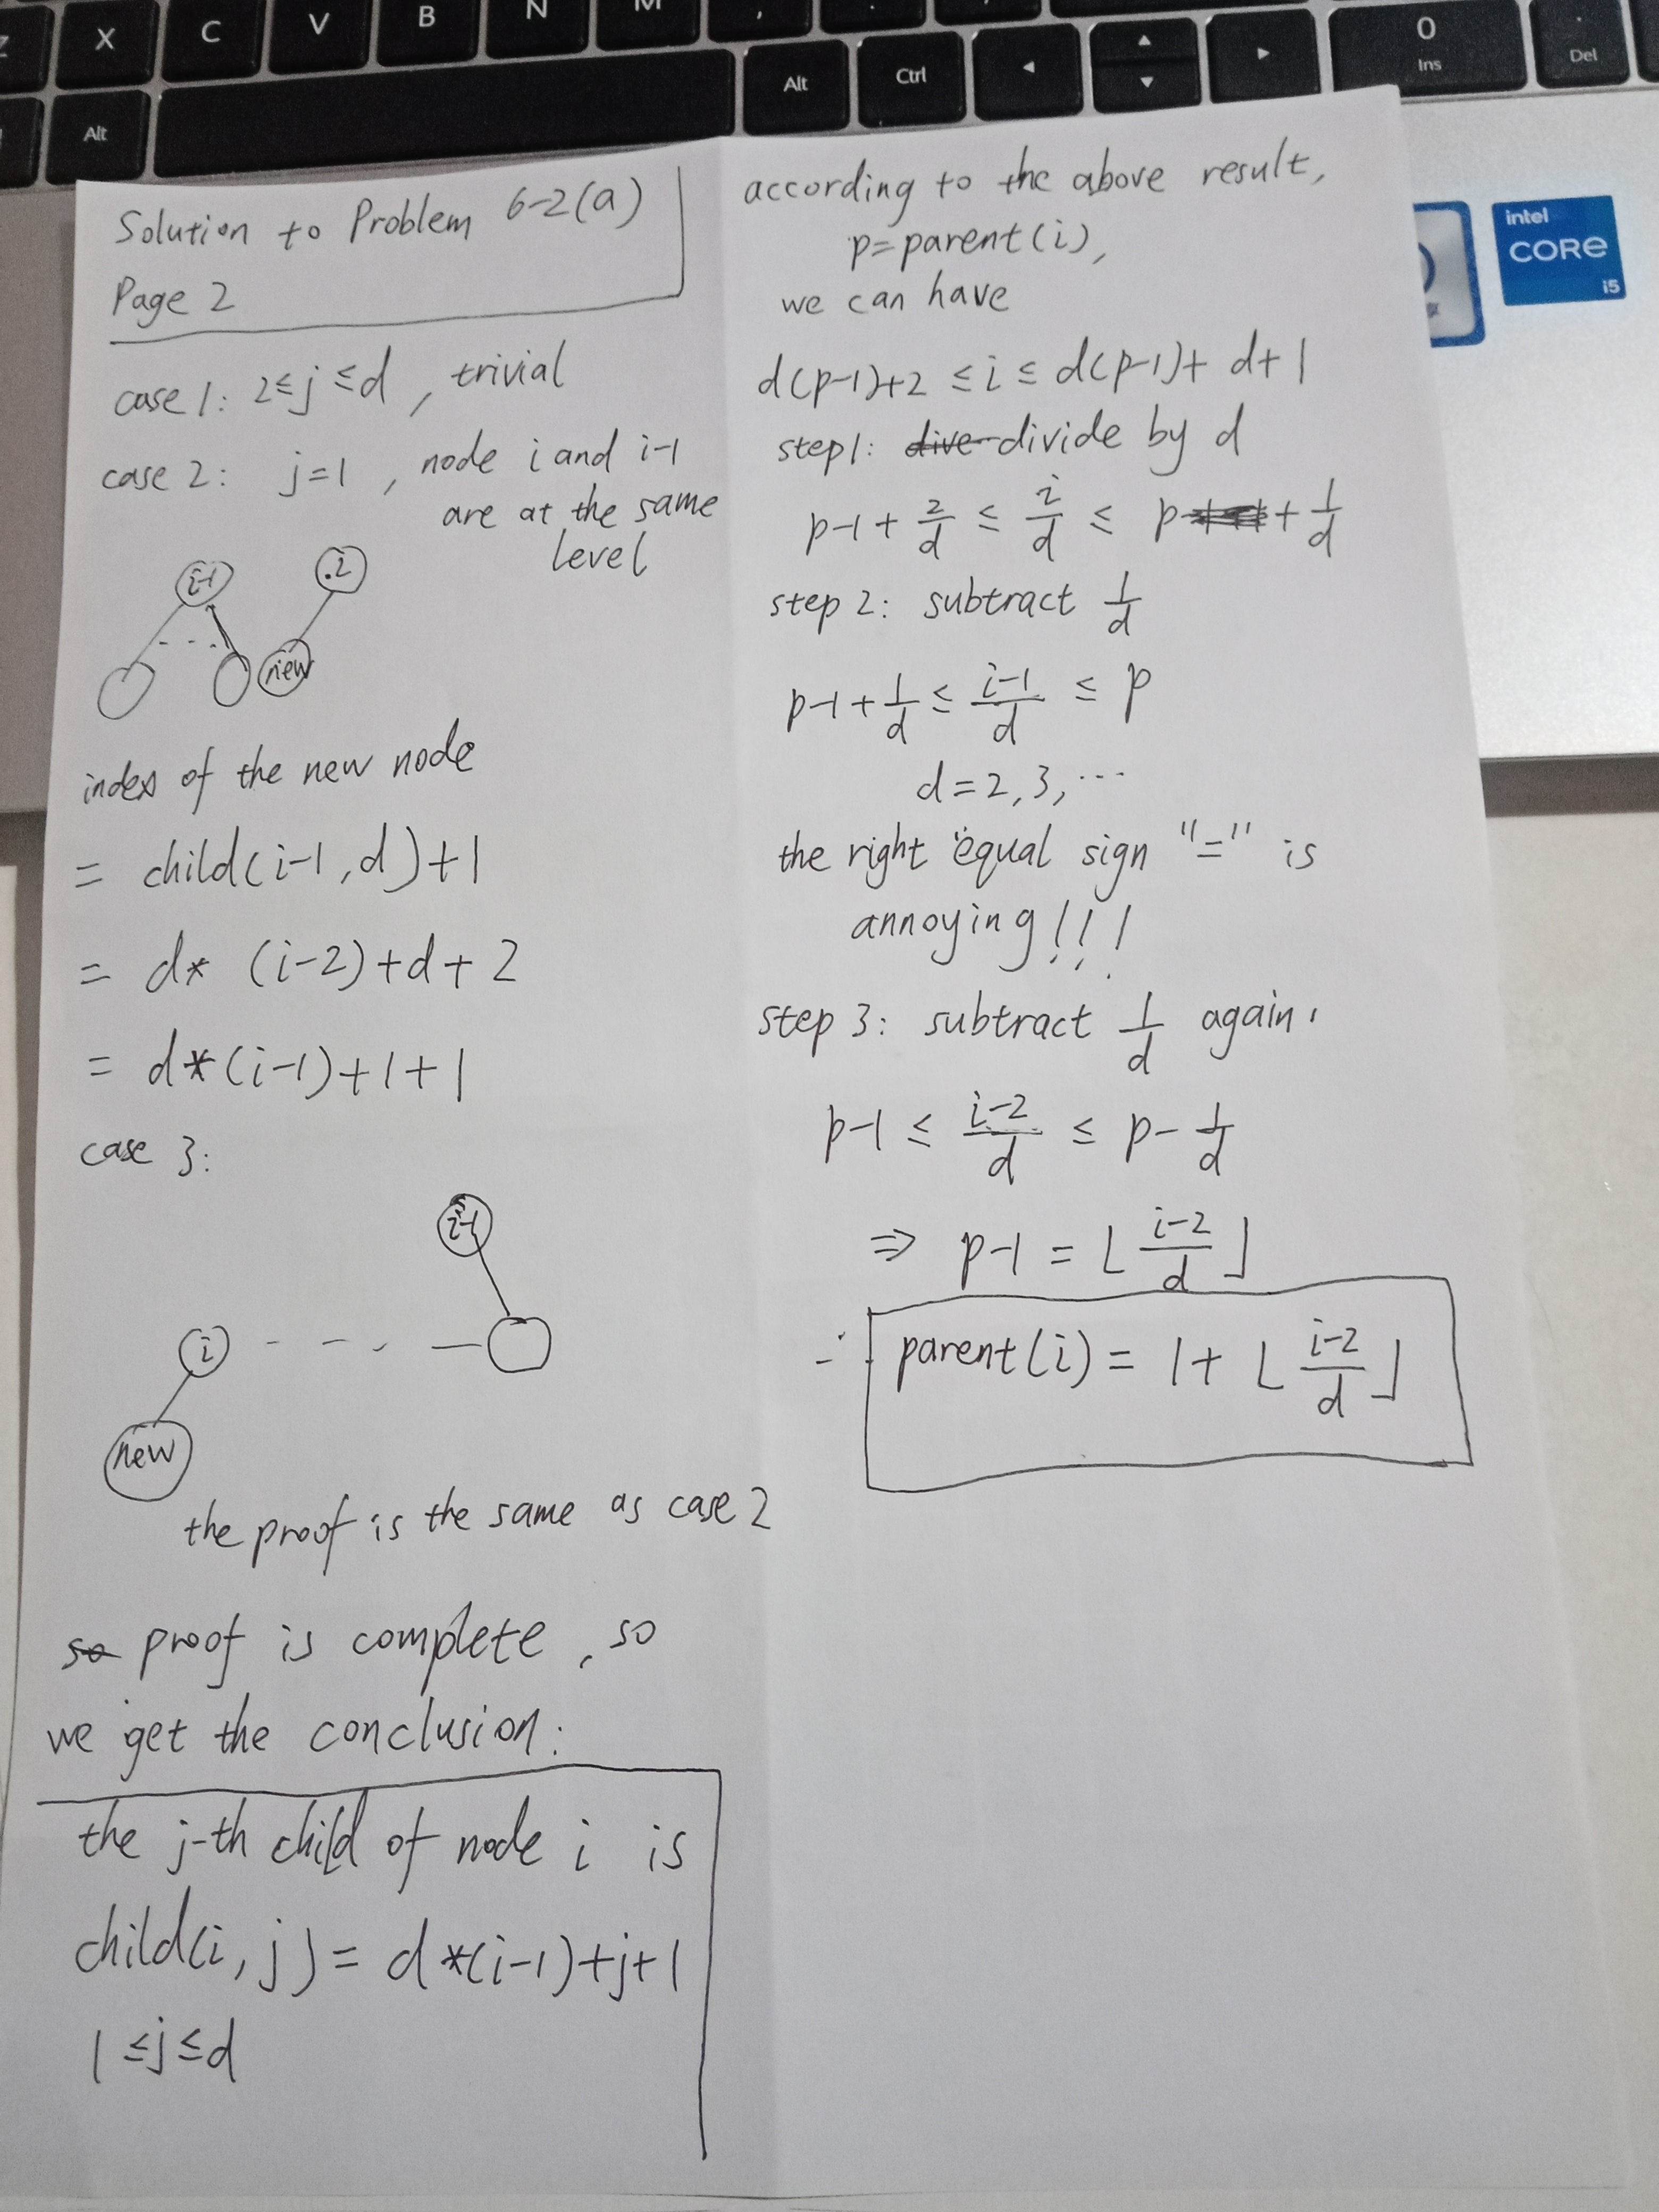 X C V B N M ,
Alt Alt Ctrl 0 Ins . Del
intel
CORE
i5
Solution to Problem 6-2(a)
Page 2
case 1: 2≤j≤d, trivial
case 2: j=1, node i and i-1
are at the same
level
i-1 i
new
index of the new node
= child(i-1,d)+1
= d* (i-2)+d+2
= d*(i-1)+1+1
case 3:
i-1
i - - - —
new
the proof is the same as case 2
so proof is complete, so
we get the conclusion:
the j-th child of node i is
child(i, j) = d*(i-1)+j+1
1≤j≤d
according to the above result,
p=parent(i),
we can have
d(p-1)+2 ≤ i ≤ d(p-1)+d+1
step1: dive divide by d
p-1 + 2/d ≤ i/d ≤ p + 1/d
step 2: subtract 1/d
p-1 + 1/d ≤ (i-1)/d ≤ p
d=2,3,...
the right "equal sign "=" is
annoying!!!
step 3: subtract 1/d again.
p-1 ≤ (i-2)/d ≤ p - 1/d
⇒ p-1 = ⌊(i-2)/d⌋
∴ parent(i) = 1+ ⌊(i-2)/d⌋